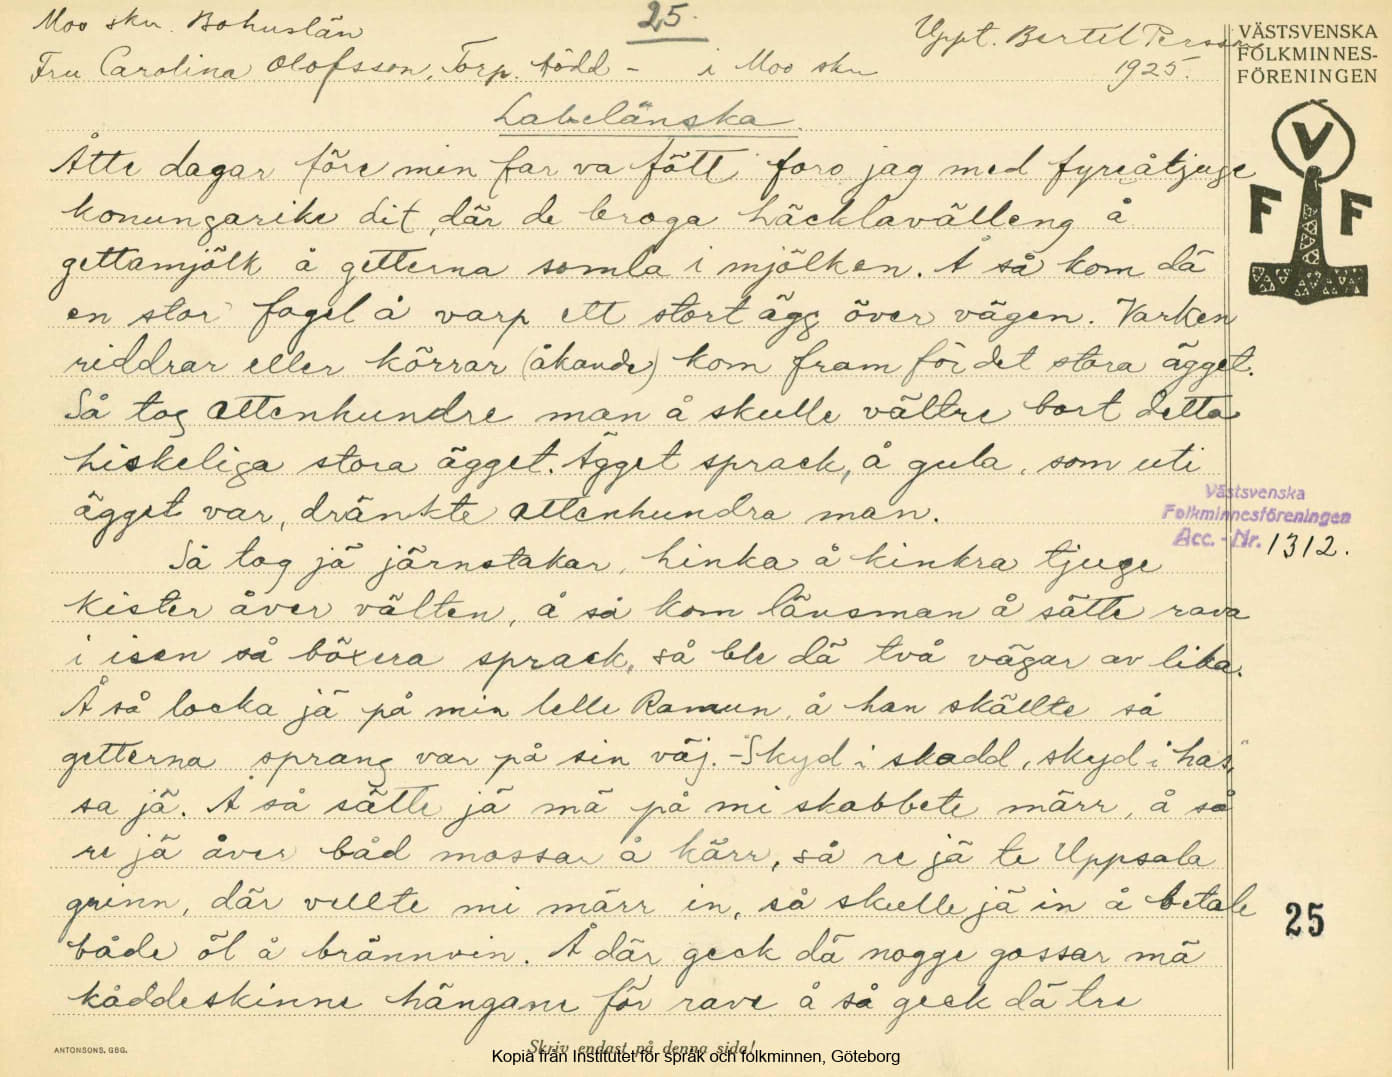 25.
Moo skn. Bohuslän
Uppt. Bertel Persson
Fru Carolina Olofsson, Torp. född - i Moo skn
1925.
VÄSTSVENSKA
FOLKMINNES-
FÖRENINGEN
V
F F
Labelänska
Åtte dagar före min far va fött foro jag med fyreåtjuge
konungarike dit, där de broga häcklavälleng å
gettamjölk å getterna somla i mjölken. Å så kom dä
en stor fogel å varp ett stort ägg över vägen. Varken
riddrar eller körrar (åkande) kom fram för det stora ägget.
Så tog attenhundre man å skulle vältre bort detta
hiskeliga stora ägget. Ägget sprack, å gula, som uti
ägget var, dränkte attenhundra man.
Så tog jä järnstakar, hinka å kinkra tjuge
kister åver välten, å så kom länsman å sätte rava
i isen så böxera sprack, så ble dä två vägar av lika.
Å så locka jä på min lelle Ramun, å han skällte så
getterna sprang var på sin väj. - "Skyd i skadd, skyd i has,"
sa jä. Å så sätte jä mä på mi skabbete märr, å så
re jä åver båd mossar å kärr, så re jä te Uppsala
grinn, där vellte mi märr in, så skulle jä in å betale
både öl å brännvin. Å där geck dä nogge gossar mä
kåddeskinne hängane för rave å så geck dä tre
Västsvenska
Folkminnesföreningen
Acc. - Nr. 1312.
25
ANTONSONS, GBG.
Skriv endast på denna sida!
Kopia från Institutet för språk och folkminnen, Göteborg